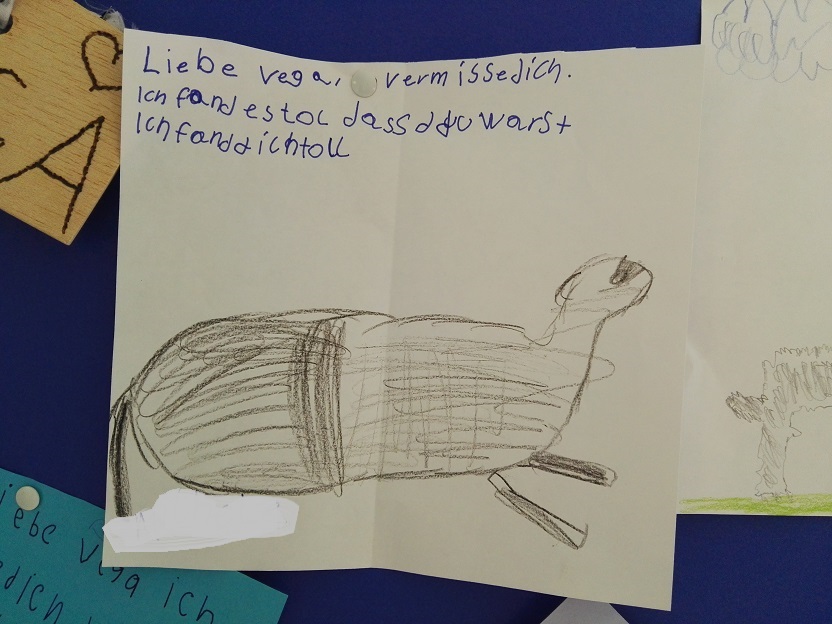 Liebe vega, vermissedich.
Ich fand es tol dass du warst
Ich fand dich toll
A
iebe vega ich
dich